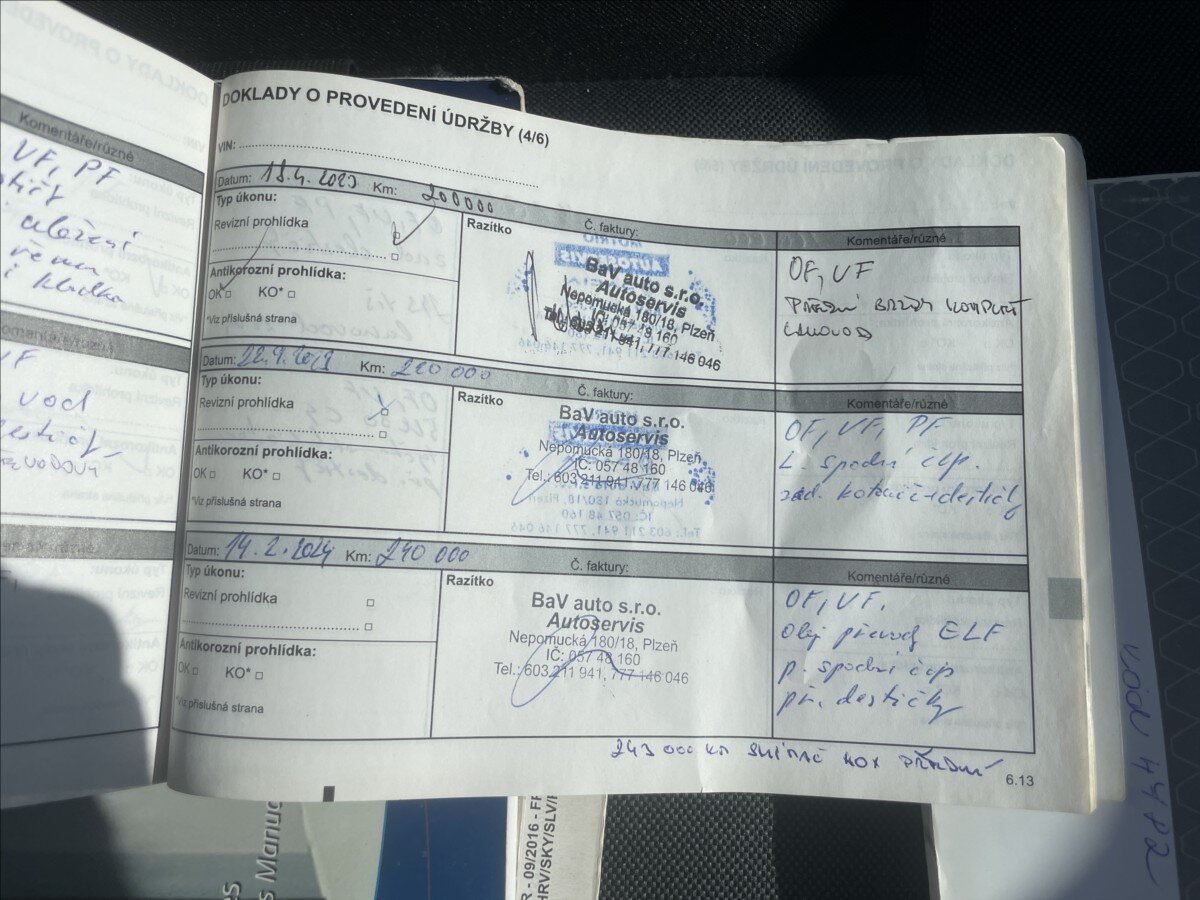 DOKLADY O PROVEDENÍ ÚDRŽBY (4/6)
VIN:
Datum: 18.4.2023 Km: 200000
Typ úkonu:
Revizní prohlídka
Antikorozní prohlídka:
OK KO*
*Viz příslušná strana
Razítko
Č. faktury:
BaV auto s.r.o.
Autoservis
Nepomucká 180/18, Plzeň
IČ: 057 48 160
Tel.: 603 211 941, 777 146 046
Komentáře/různé
OF, VF
PŘEDNÍ BRZDY KOMPLET
Datum: 22.9. Km: 220 000
Typ úkonu:
Revizní prohlídka
Antikorozní prohlídka:
OK KO*
*Viz příslušná strana
Razítko
Č. faktury:
BaV auto s.r.o.
Autoservis
Nepomucká 180/18, Plzeň
IČ: 057 48 160
Tel.: 603 211 941, 777 146 046
Komentáře/různé
OF, VF, PF
L. spodní čep.
zad. kotouče+destičky
Datum: 14.2.2024 Km: 240 000
Typ úkonu:
Revizní prohlídka
Antikorozní prohlídka:
OK KO*
*Viz příslušná strana
Razítko
Č. faktury:
BaV auto s.r.o.
Autoservis
Nepomucká 180/18, Plzeň
IČ: 057 48 160
Tel.: 603 211 941, 777 146 046
Komentáře/různé
OF, VF.
Olej převod ELF
p. spodní čep
př. destičky
243 000 KM SNÍMAČ NOX PŘEDNÍ
6.13
Komentáře/různé
VF, PF
uložení
kladka
VF
- 09/2016 -
HRV/SKY/SLV/